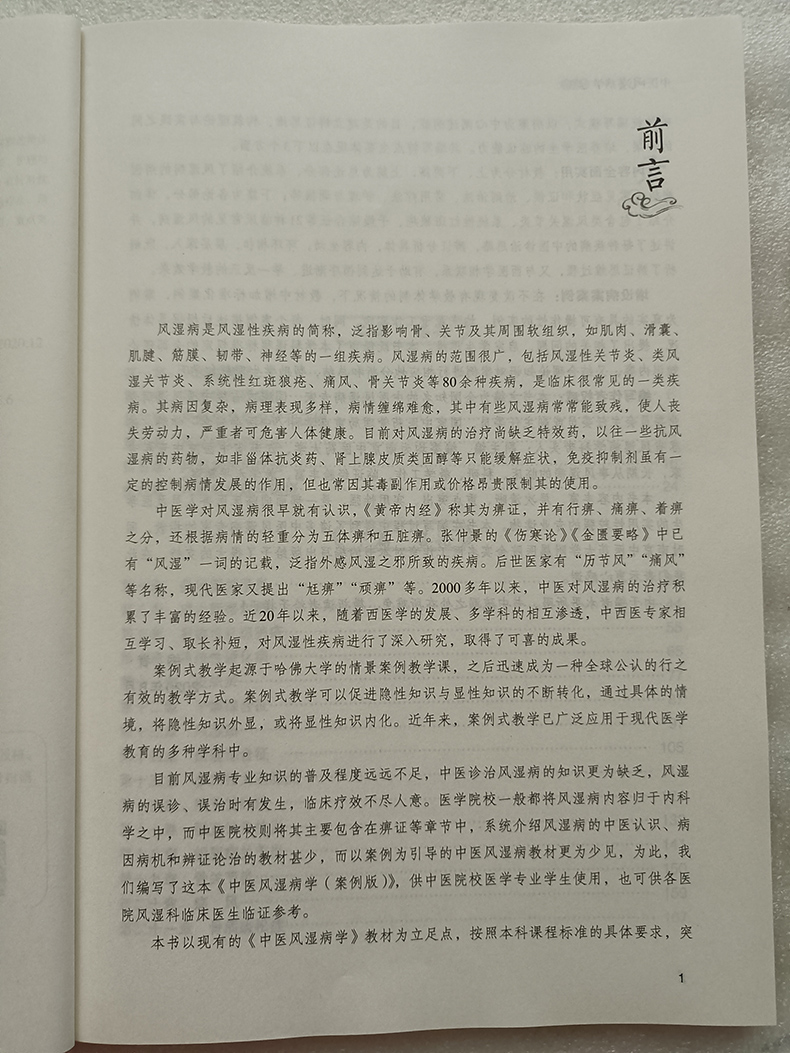 前言
风湿病是风湿性疾病的简称，泛指影响骨、关节及其周围软组织，如肌肉、滑囊、
肌腱、筋膜、韧带、神经等的一组疾病。风湿病的范围很广，包括风湿性关节炎、类风
湿关节炎、系统性红斑狼疮、痛风、骨关节炎等80余种疾病，是临床很常见的一类疾
病。其病因复杂，病理表现多样，病情缠绵难愈，其中有些风湿病常常能致残，使人丧
失劳动力，严重者可危害人体健康。目前对风湿病的治疗尚缺乏特效药，以往一些抗风
湿病的药物，如非甾体抗炎药、肾上腺皮质类固醇等只能缓解症状，免疫抑制剂虽有一
定的控制病情发展的作用，但也常因其毒副作用或价格昂贵限制其的使用。
中医学对风湿病很早就有认识，《黄帝内经》称其为痹证，并有行痹、痛痹、着痹
之分，还根据病情的轻重分为五体痹和五脏痹。张仲景的《伤寒论》《金匮要略》中已
有“风湿”一词的记载，泛指外感风湿之邪所致的疾病。后世医家有“历节风”“痛风”
等名称，现代医家又提出“尪痹”“顽痹”等。2000多年以来，中医对风湿病的治疗积
累了丰富的经验。近20年以来，随着西医学的发展、多学科的相互渗透，中西医专家相
互学习、取长补短，对风湿性疾病进行了深入研究，取得了可喜的成果。
案例式教学起源于哈佛大学的情景案例教学课，之后迅速成为一种全球公认的行之
有效的教学方式。案例式教学可以促进隐性知识与显性知识的不断转化，通过具体的情
境，将隐性知识外显，或将显性知识内化。近年来，案例式教学已广泛应用于现代医学
教育的多种学科中。
目前风湿病专业知识的普及程度远远不足，中医诊治风湿病的知识更为缺乏，风湿
病的误诊、误治时有发生，临床疗效不尽人意。医学院校一般都将风湿病内容归于内科
学之中，而中医院校则将其主要包含在痹证等章节中，系统介绍风湿病的中医认识、病
因病机和辨证论治的教材甚少，而以案例为引导的中医风湿病教材更为少见，为此，我
们编写了这本《中医风湿病学（案例版）》，供中医院校医学专业学生使用，也可供各医
院风湿科临床医生临证参考。
本书以现有的《中医风湿病学》教材为立足点，按照本科课程标准的具体要求，突
1